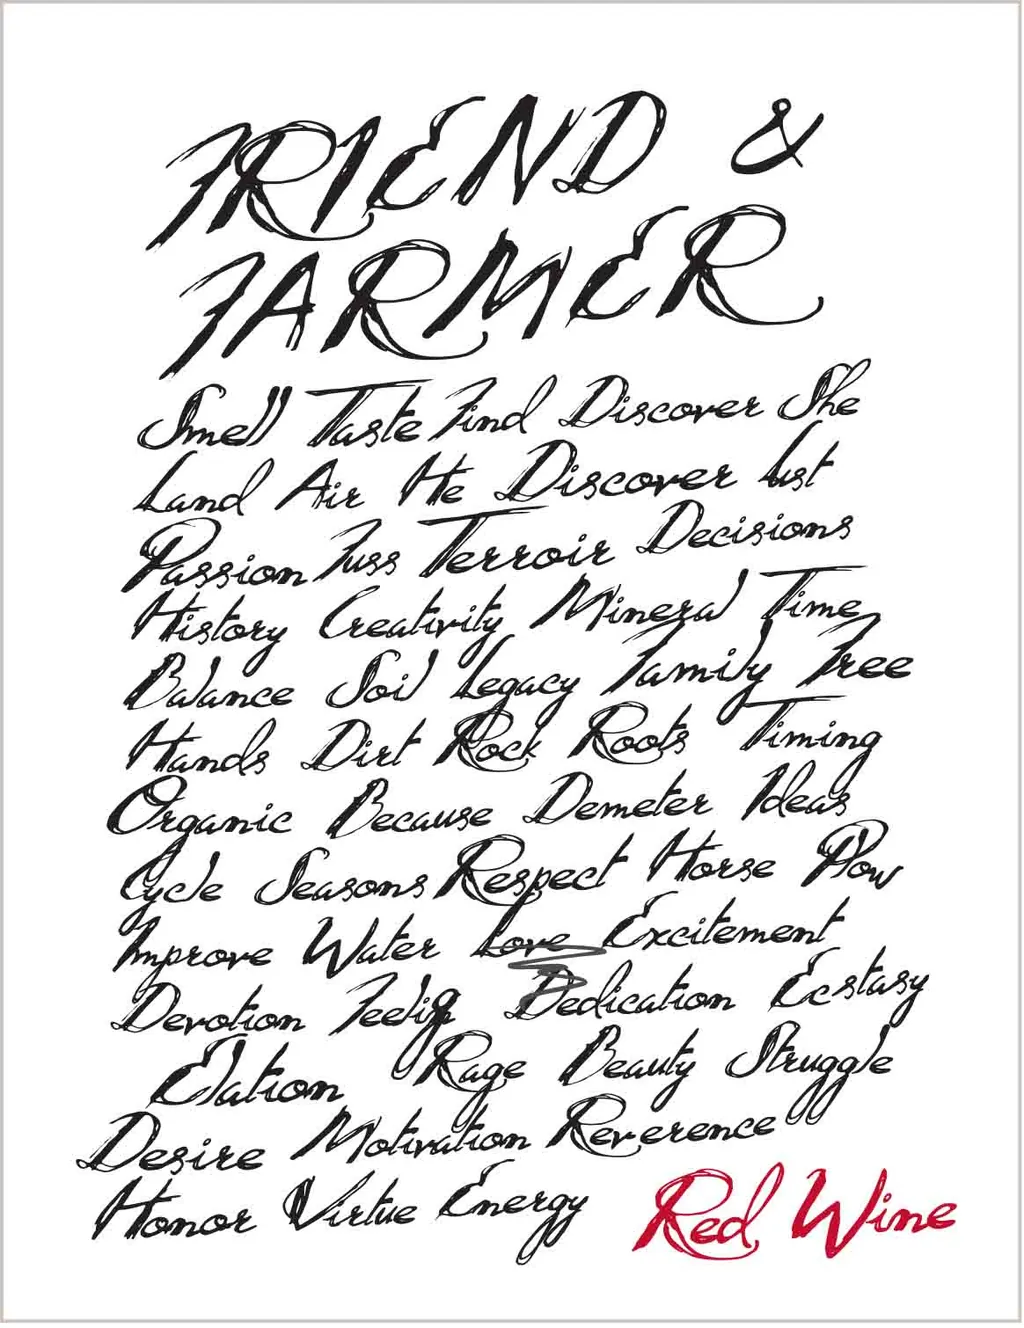 FRIEND &
FARMER
Smell Taste Find Discover She
Land Air He Discover Lust
Passion Fuss Terroir Decisions
History Creativity Mineral Time
Balance Soil Legacy Family Tree
Hands Dirt Rock Roots Timing
Organic Because Demeter Ideas
Cycle Seasons Respect Horse Plow
Improve Water Love Excitement
Devotion Dedication Ecstasy
Elation Rage Beauty Struggle
Desire Motivation Reverence
Honor Virtue Energy Red Wine